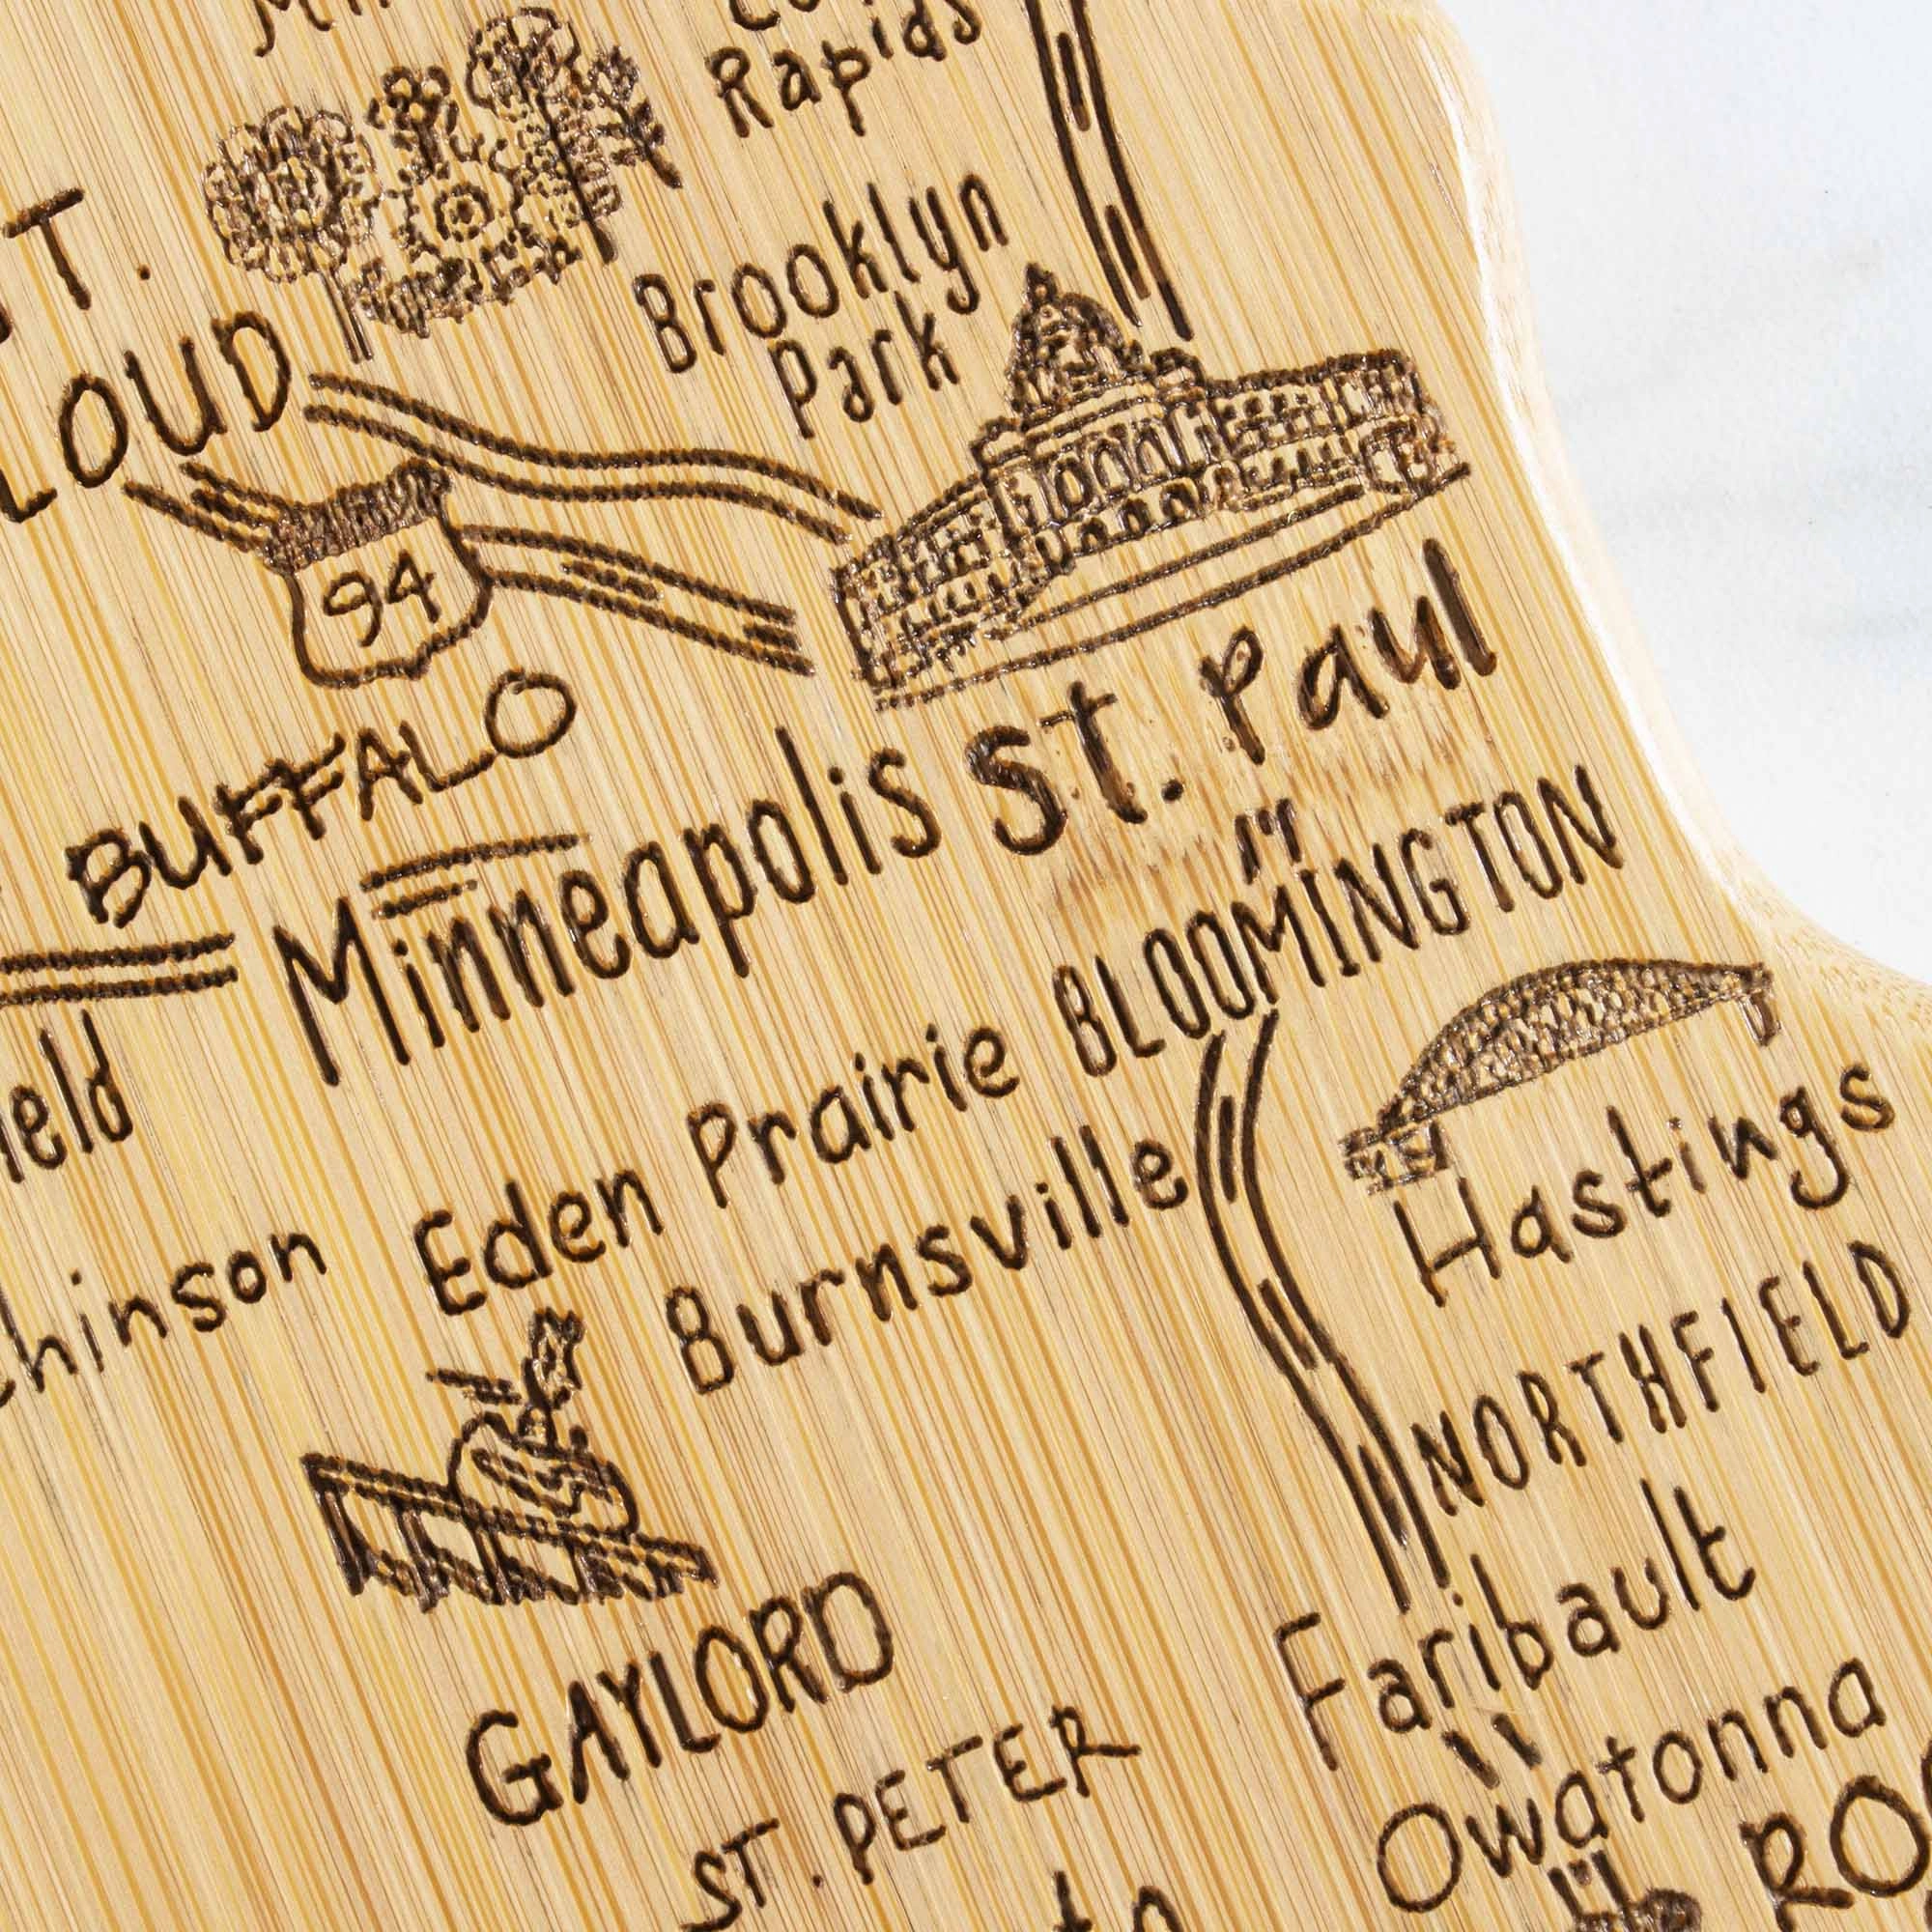 Rapids
Brooklyn
Park
ST.
LOUD
94
St. Paul
BUFFALO
Minneapolis
BLOOMINGTON
ield
Eden Prairie
Hastings
hinson
Burnsville
NORTHFIELD
GAYLORD
Faribault
ST. PETER
Owatonna
RO